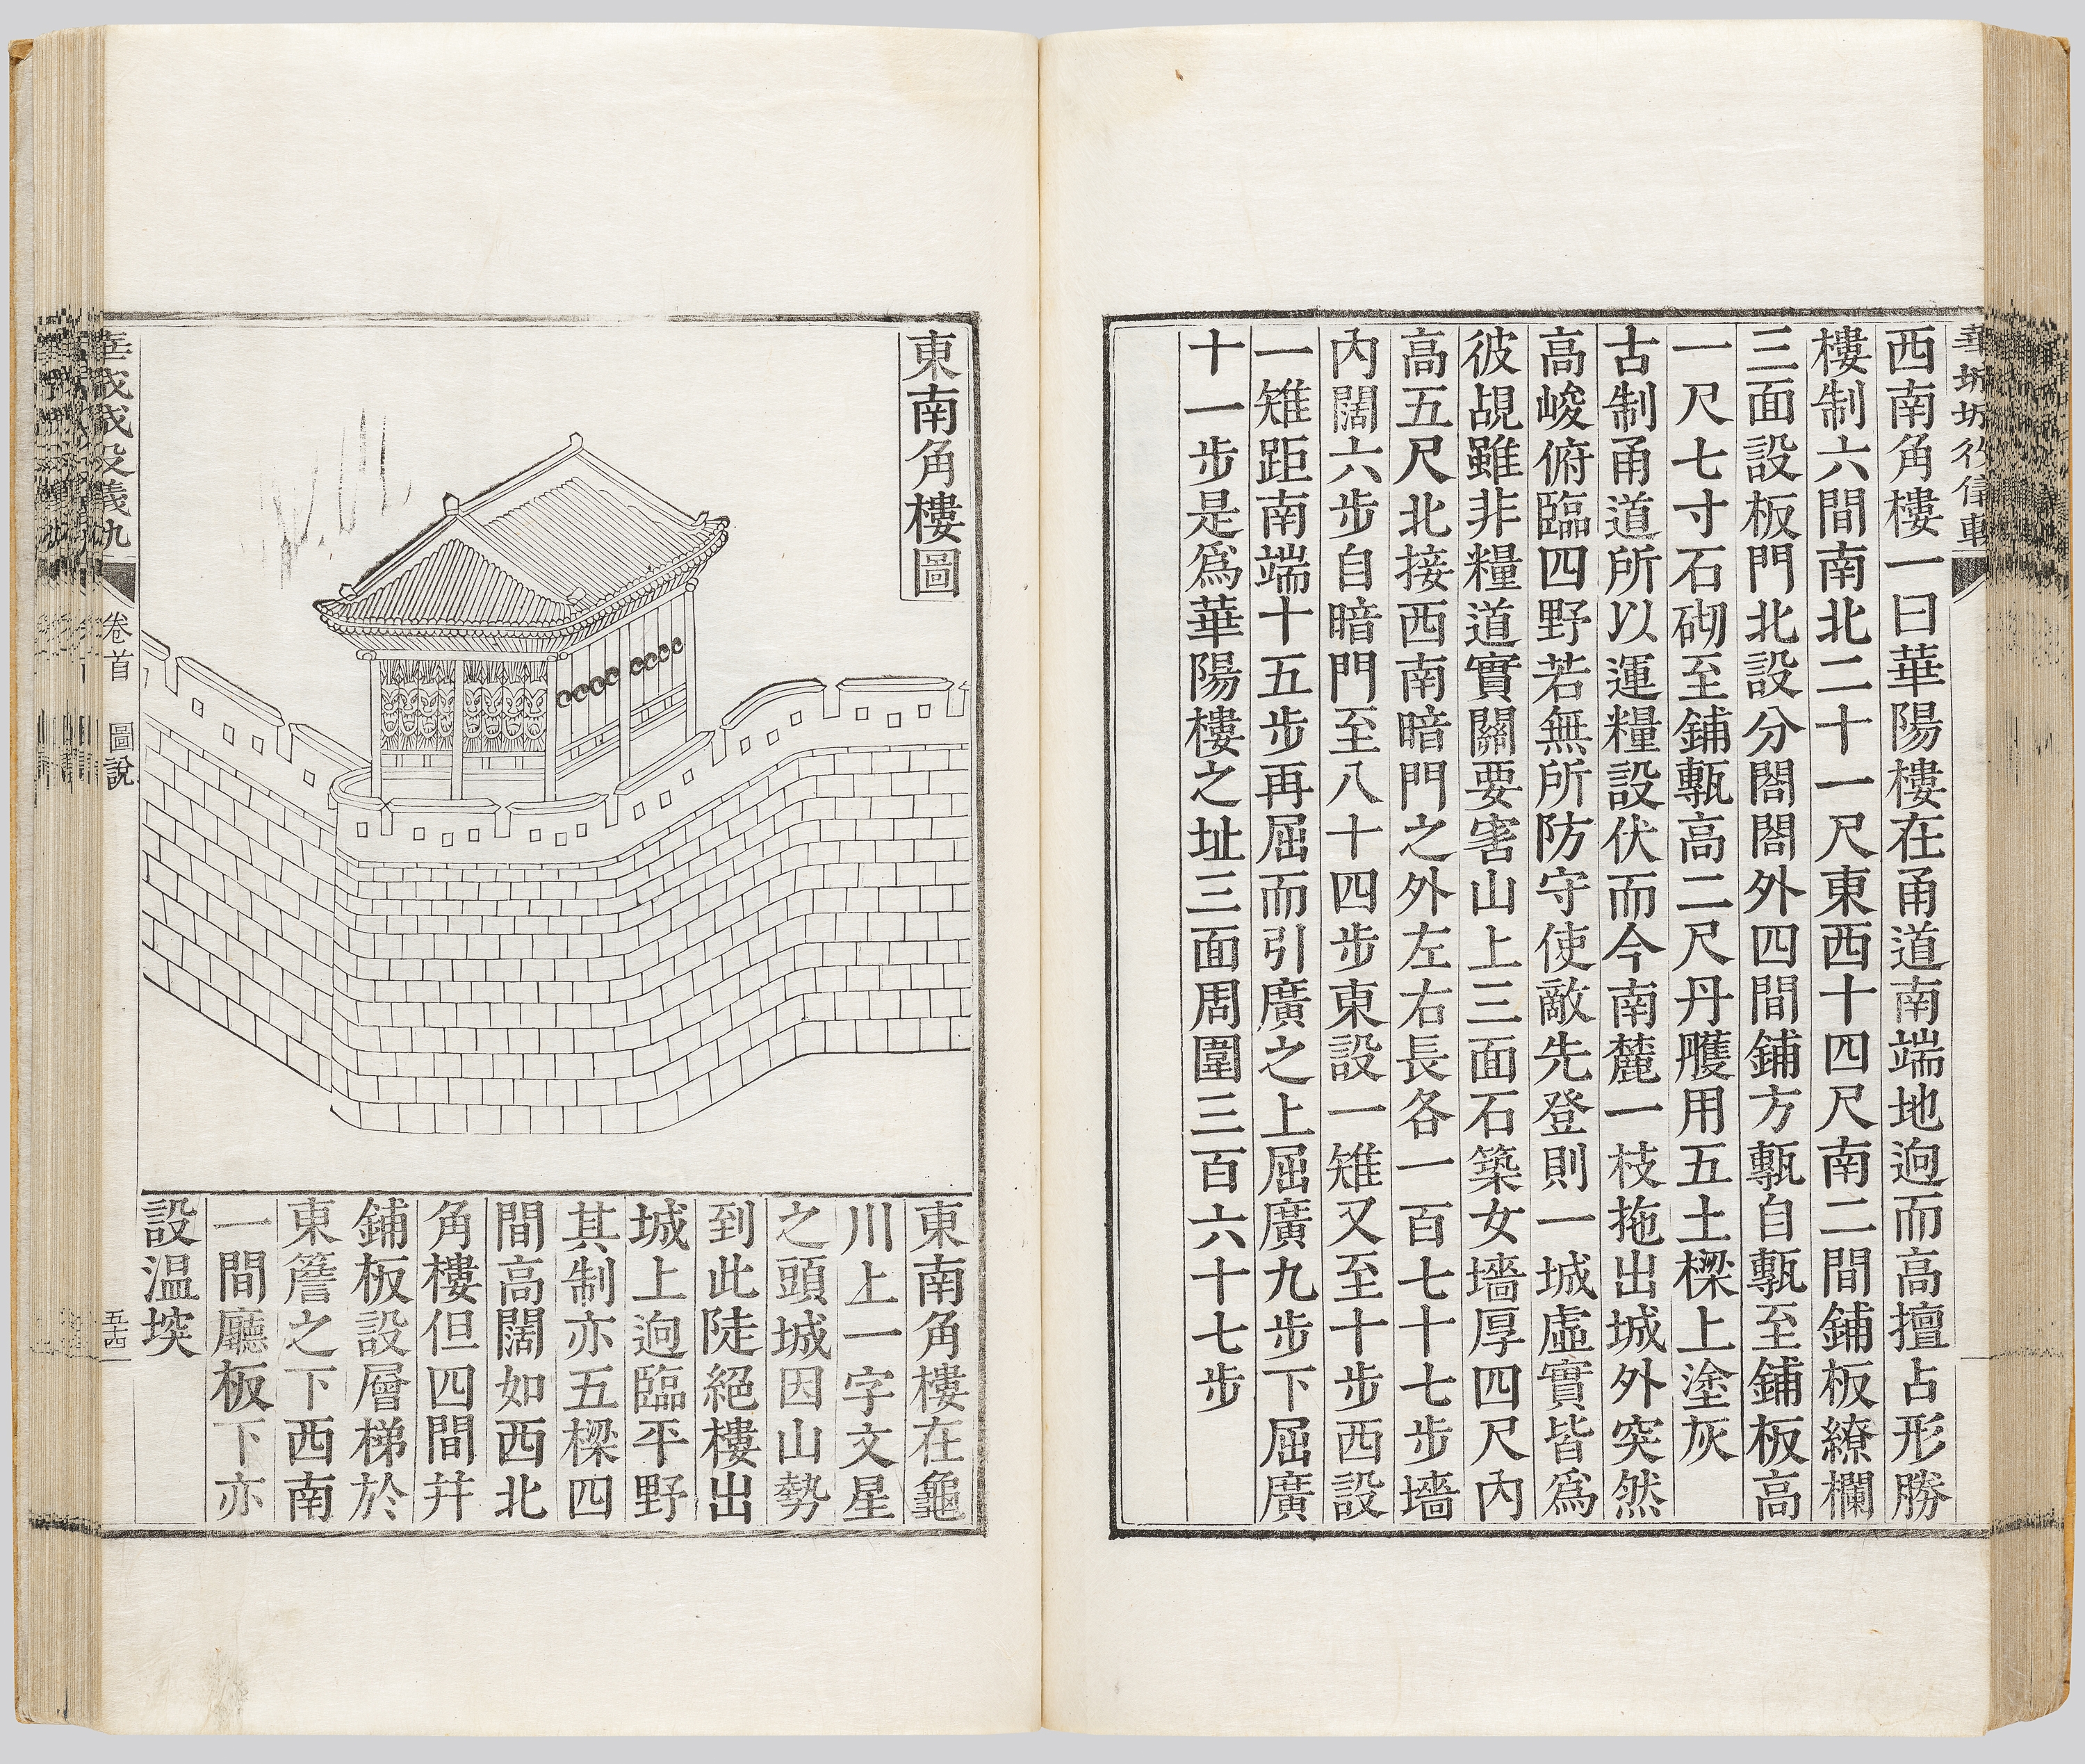 西南角樓一曰華陽樓在甬道南端地逈而高擅占形勝
樓制六間南北二十一尺東西十四尺南二間鋪板繚欄
三面設板門北設分閤閤外四間鋪方甎自甎至鋪板高
一尺七寸石砌至鋪甎高二尺丹雘用五土樑上塗灰
古制甬道所以運糧設伏而今南麓一枝拖出城外突然
高峻俯臨四野若無所防守使敵先登則一城虛實皆爲
彼覘雖非糧道實關要害山上三面石築女墻厚四尺內
高五尺北接西南暗門之外左右長各一百七十七步墻
內闊六步自暗門至八十四步東設一雉又至十步西設
一雉距南端十五步再屈而引廣之上屈廣九步下屈廣
十一步是爲華陽樓之址三面周圍三百六十七步
東南角樓圖
東南角樓在龜
川上一字文星
之頭城因山勢
到此陡絕樓出
城上逈臨平野
其制亦五樑四
間高闊如西北
角樓但四間幷
鋪板設層梯於
東簷之下西南
一間廳板下亦
設溫堗
卷首 圖說
五十四